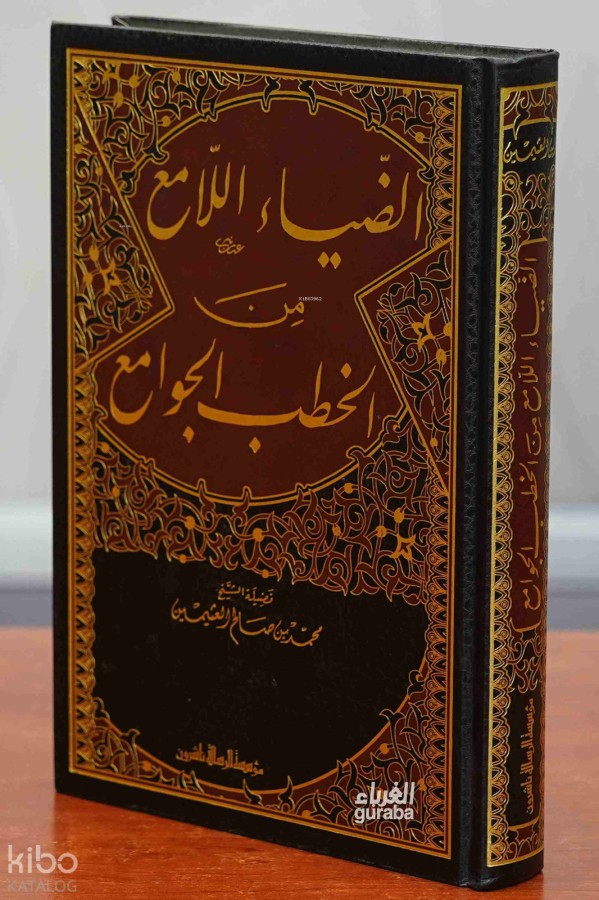 الضّياء اللّامع
مِنَ
الخطب الجوامع
فضيلة الشيخ
محمد بن صالح العثيمين
مؤسسة الرسالة ناشرون
بن العثيمين
الضياء اللامع مِنَ الخطب الجوامع
مؤسسة الرسالة ناشرون
الغرباء
guraba
kibo
KATALOG